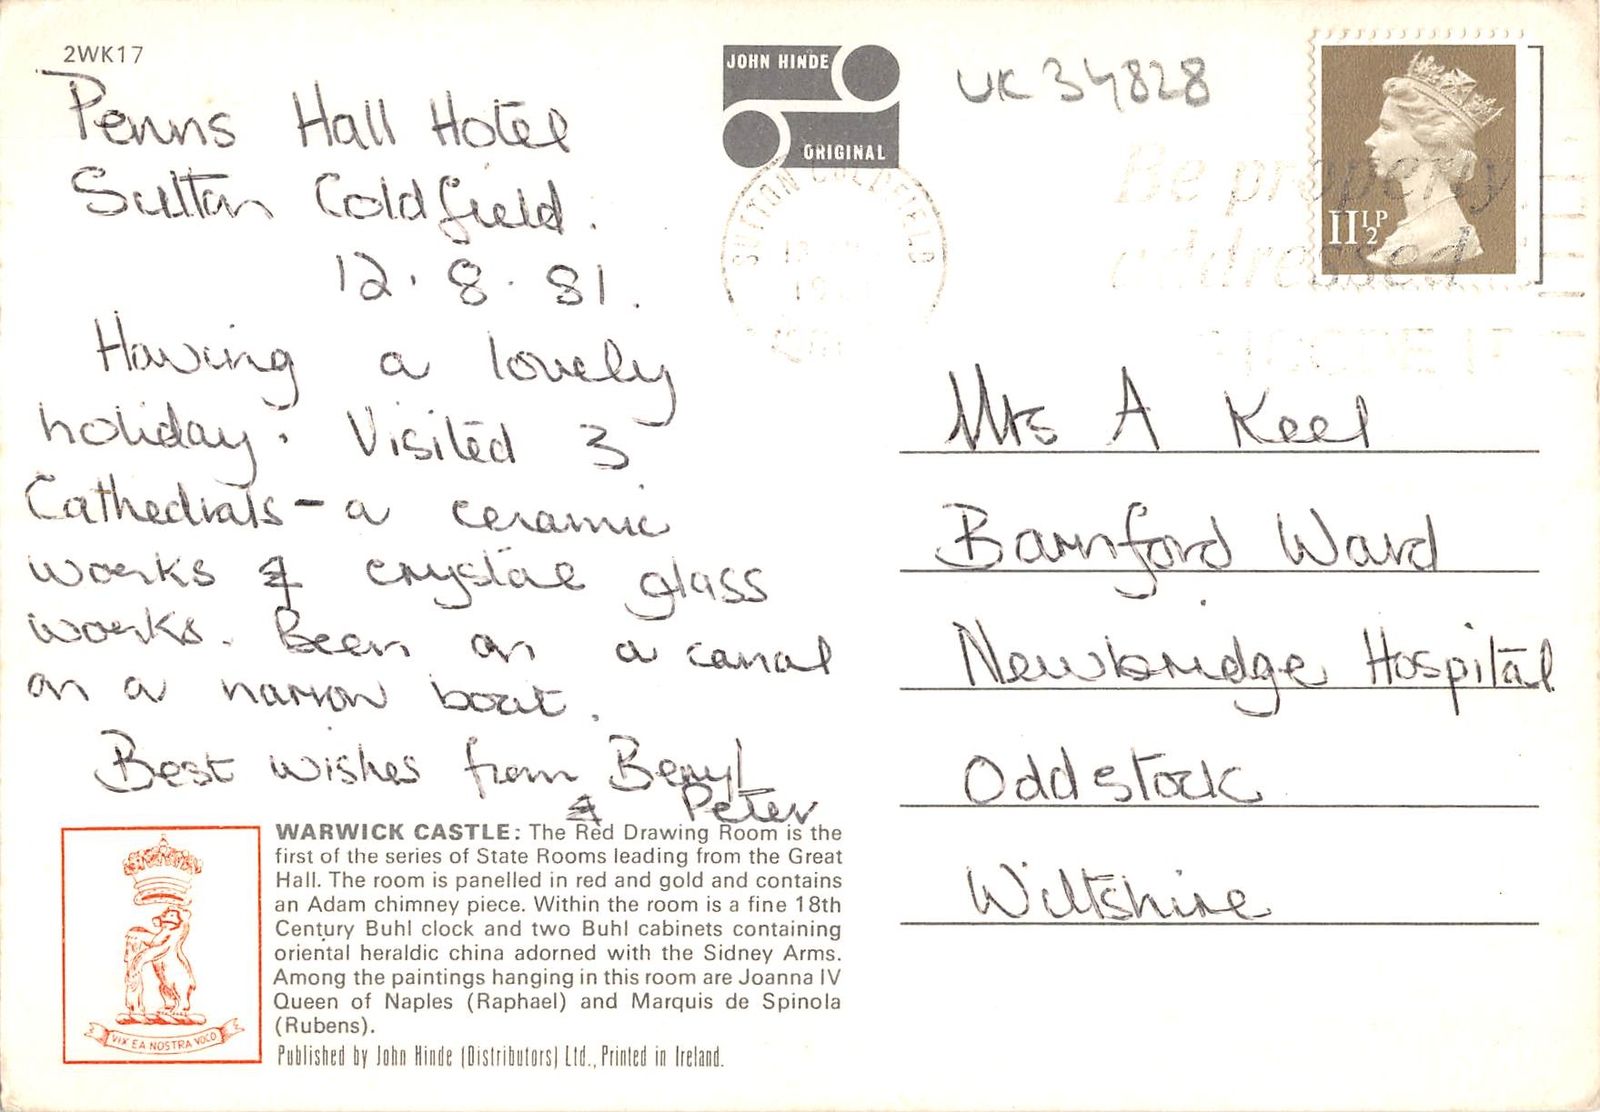 2WK17
Penns Hall Hotel
Sutton Coldfield.
12.8.81.
Having a lovely
holiday. Visited 3
Cathedrals - a ceramic
works & crystal glass
works. Been on a canal
on a narrow boat.
Best wishes from Beryl
& Peter
WARWICK CASTLE: The Red Drawing Room is the
first of the series of State Rooms leading from the Great
Hall. The room is panelled in red and gold and contains
an Adam chimney piece. Within the room is a fine 18th
Century Buhl clock and two Buhl cabinets containing
oriental heraldic china adorned with the Sidney Arms.
Among the paintings hanging in this room are Joanna IV
Queen of Naples (Raphael) and Marquis de Spinola
(Rubens).
Published by John Hinde (Distributors) Ltd., Printed in Ireland.
VIX EA NOSTRA VOCO
JOHN HINDE
ORIGINAL
UK 34828
SUTTON COLDFIELD
Be properly
addressed
11½P
Mrs A Keel
Barnford Ward
Newbridge Hospital
Oddstock
Wiltshire